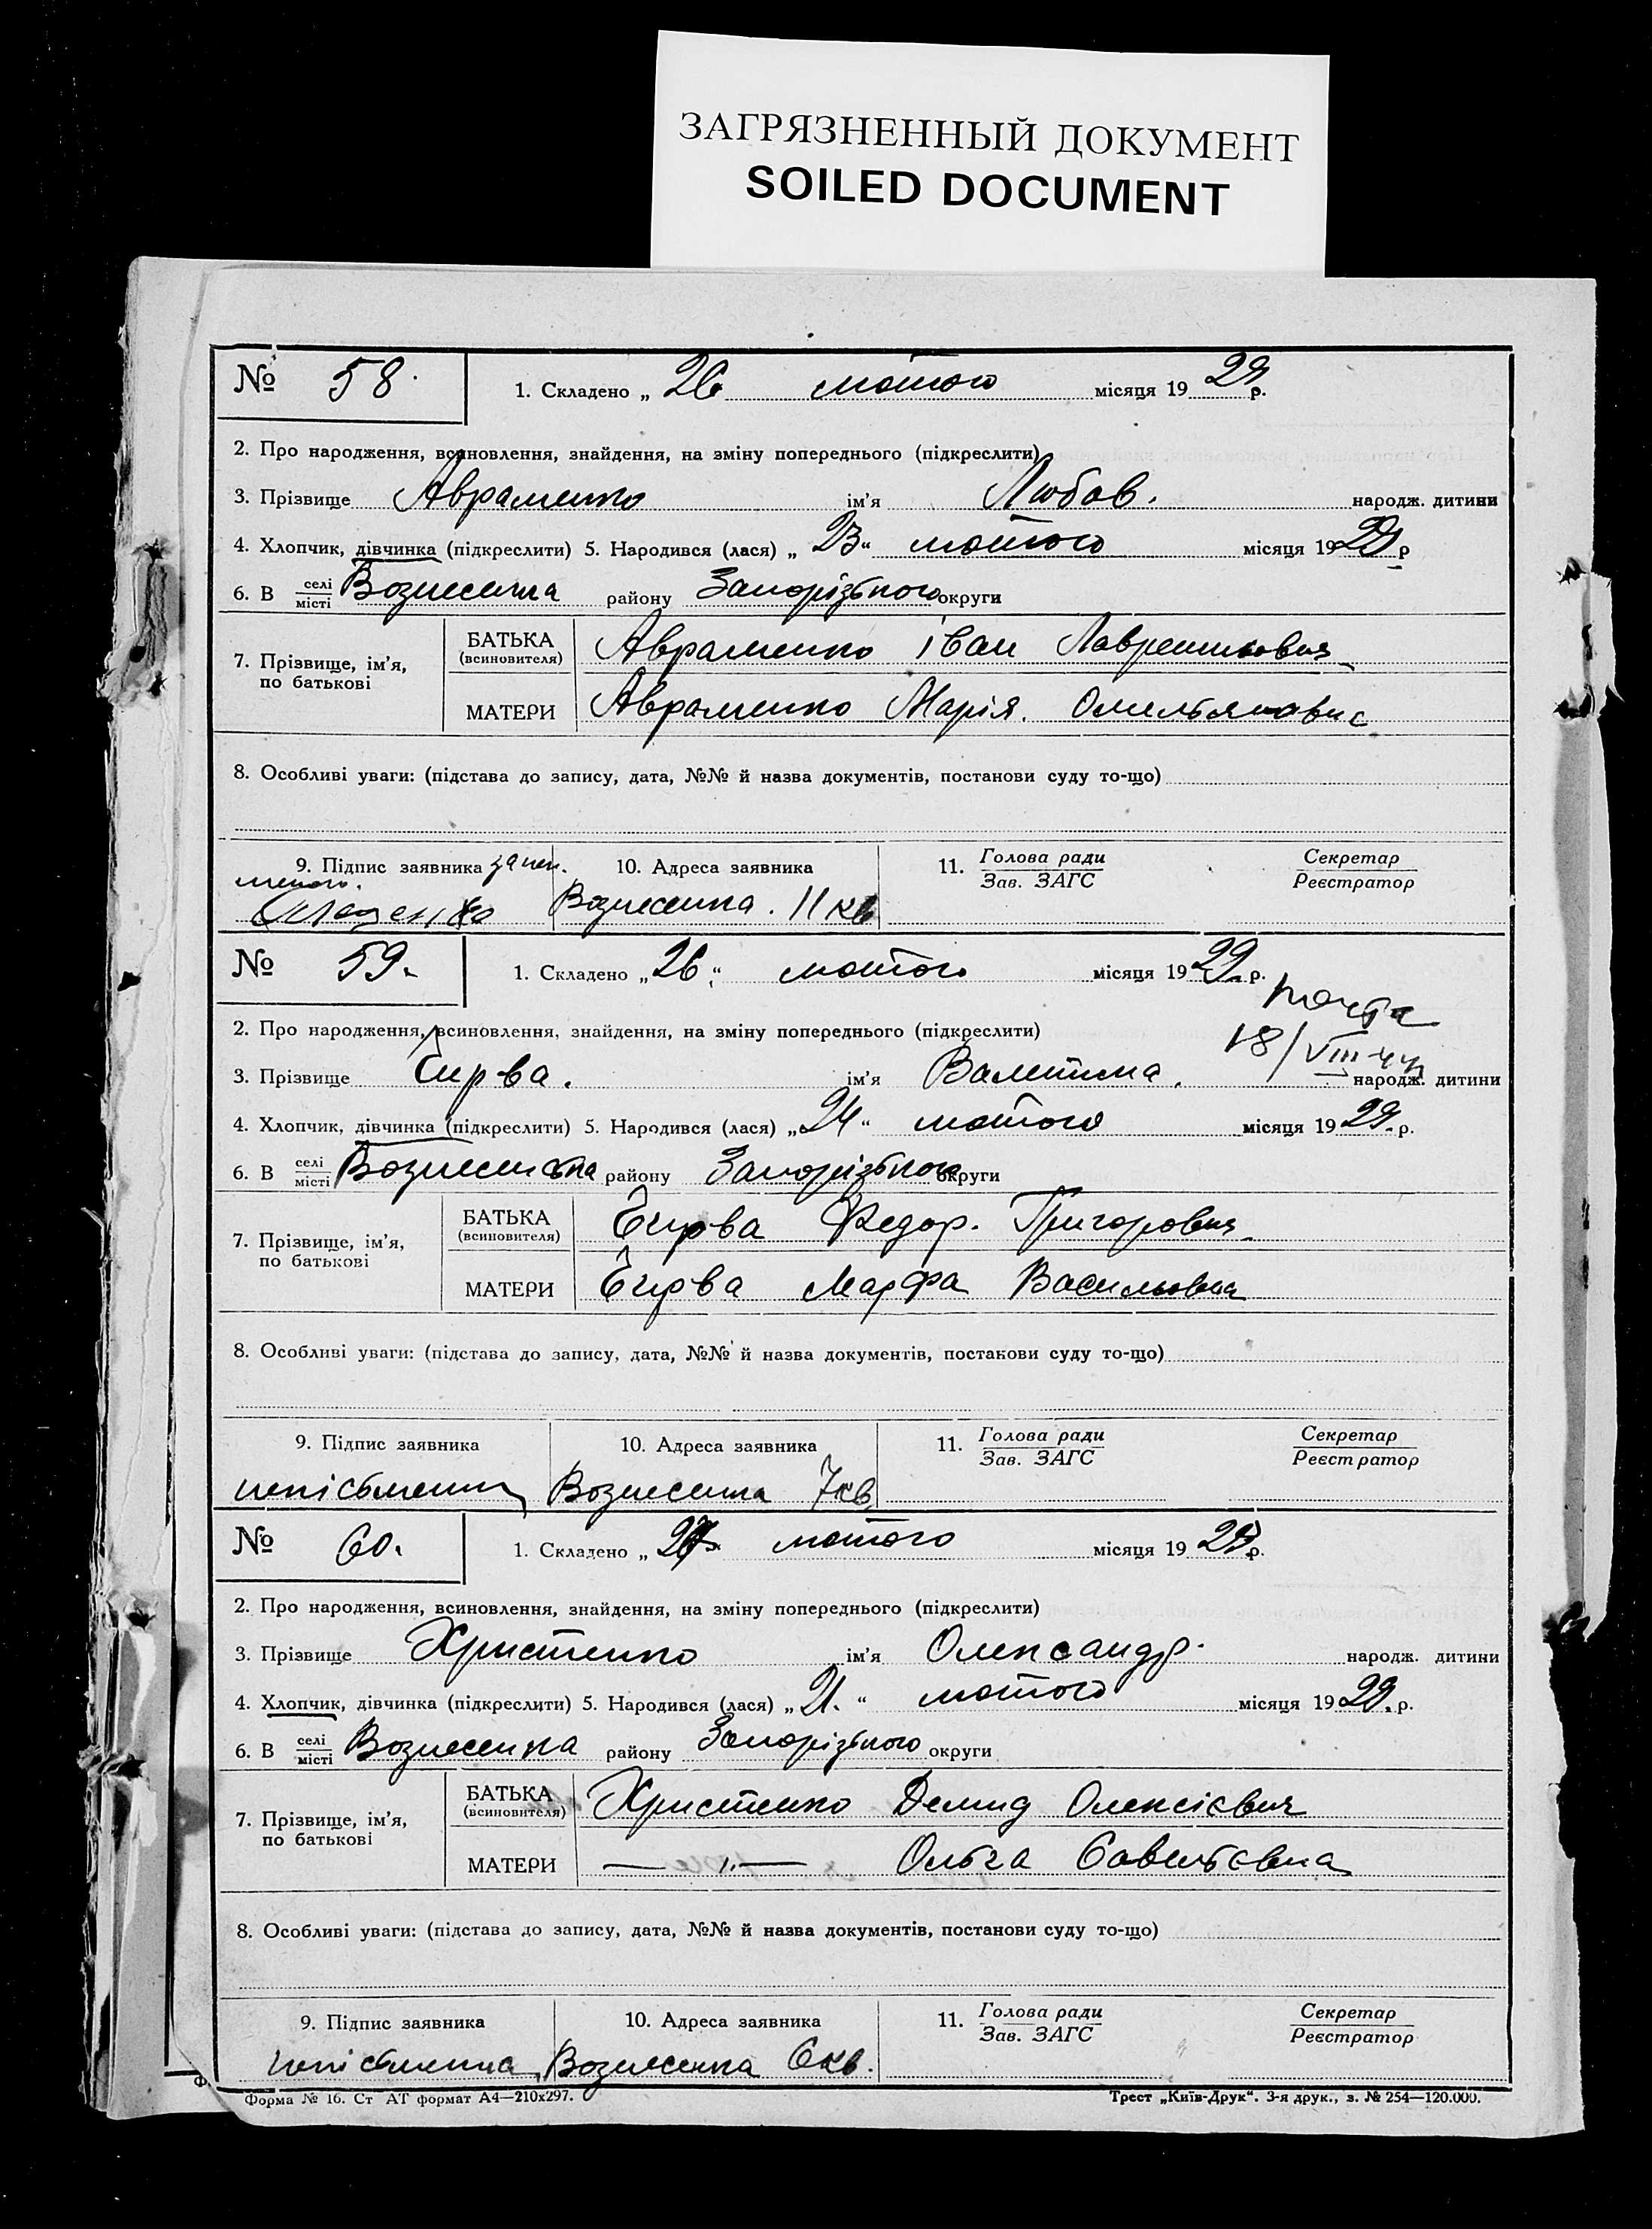 ЗАГРЯЗНЕННЫЙ ДОКУМЕНТ
SOILED DOCUMENT
№ 58. 1. Складено „ 26 лютого місяця 19 29 р.
2. Про народження, всиновлення, знайдення, на зміну попереднього (підкреслити)
3. Прізвище Авраменко ім'я Любов. народж. дитини
4. Хлопчик, дівчинка (підкреслити) 5. Народився (лася) „ 23 “ лютого місяця 19 29 р
6. В селі місті Вознесенка району Запорізького округи
7. Прізвище, ім'я, по батькові
БАТЬКА (всиновителя) Авраменко Іван Лаврентьович
МАТЕРИ Авраменко Марія. Омельяновна
8. Особливі уваги: (підстава до запису, дата, №№ й назва документів, постанови суду то-що)
9. Підпис заявника за неп. 10. Адреса заявника 11. Голова ради Зав. ЗАГС Секретар Реєстратор
Вознесенка. 11 кв
№ 59. 1. Складено „ 26 “ лютого місяця 19 29. р.
почта
18/VIII-44
2. Про народження, всиновлення, знайдення, на зміну попереднього (підкреслити)
3. Прізвище Чирва. ім'я Валентина. народж. дитини
4. Хлопчик, дівчинка (підкреслити) 5. Народився (лася) „ 24 “ лютого місяця 19 29. р.
6. В селі місті Вознесенка району Запорізького округи
7. Прізвище, ім'я, по батькові
БАТЬКА (всиновителя) Чирва Федор. Григорович
МАТЕРИ Чирва Марфа Васильовна
8. Особливі уваги: (підстава до запису, дата, №№ й назва документів, постанови суду то-що)
9. Підпис заявника 10. Адреса заявника 11. Голова ради Зав. ЗАГС Секретар Реєстратор
непісьменни Вознесенка 7 кв
№ 60. 1. Складено „ 27 лютого місяця 19 29 р.
2. Про народження, всиновлення, знайдення, на зміну попереднього (підкреслити)
3. Прізвище Христенко ім'я Олександр. народж. дитини
4. Хлопчик, дівчинка (підкреслити) 5. Народився (лася) „ 21. “ лютого місяця 19 29. р.
6. В селі місті Вознесенка району Запорізького округи
7. Прізвище, ім'я, по батькові
БАТЬКА (всиновителя) Христенко Демид Олексієвич
МАТЕРИ — „ — Ольга Савельєвна
8. Особливі уваги: (підстава до запису, дата, №№ й назва документів, постанови суду то-що)
9. Підпис заявника 10. Адреса заявника 11. Голова ради Зав. ЗАГС Секретар Реєстратор
непісьменна Вознесенка 6 кв.
Форма № 16. Ст АТ формат А4—210х297. Трест „Київ-Друк“. 3-я друк., з. № 254—120.000.